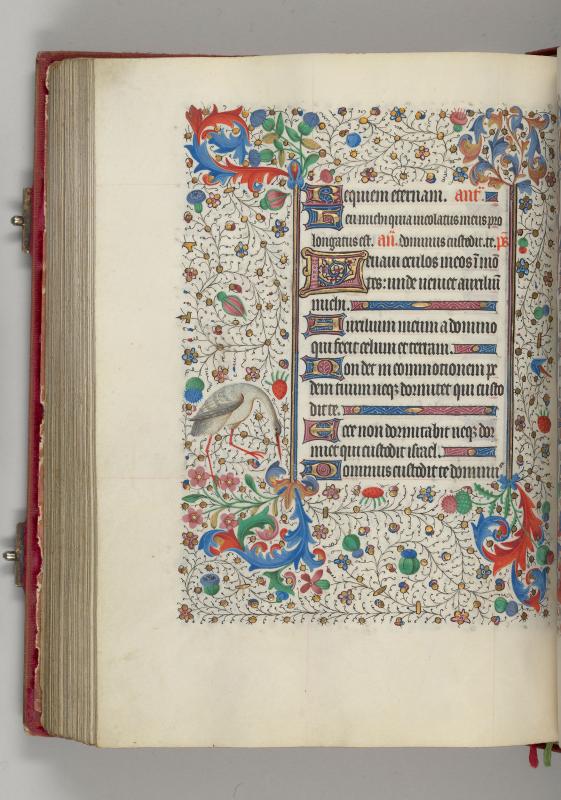 Requiem eternam. ant.
Heu michi quia incolatus meus pro
longatus est. añ. dominus custodit te. ps
Levavi oculos meos ī mō
tes: unde veniet auxiliū
michi.
Auxilium meum a domino
qui fecit celum et terram.
Non det in commotionem pe
dem tuum neqz dormitet qui custo
dit te.
Ecce non dormitabit neqz dor
miet qui custodit israel.
Dominus custodit te domin9